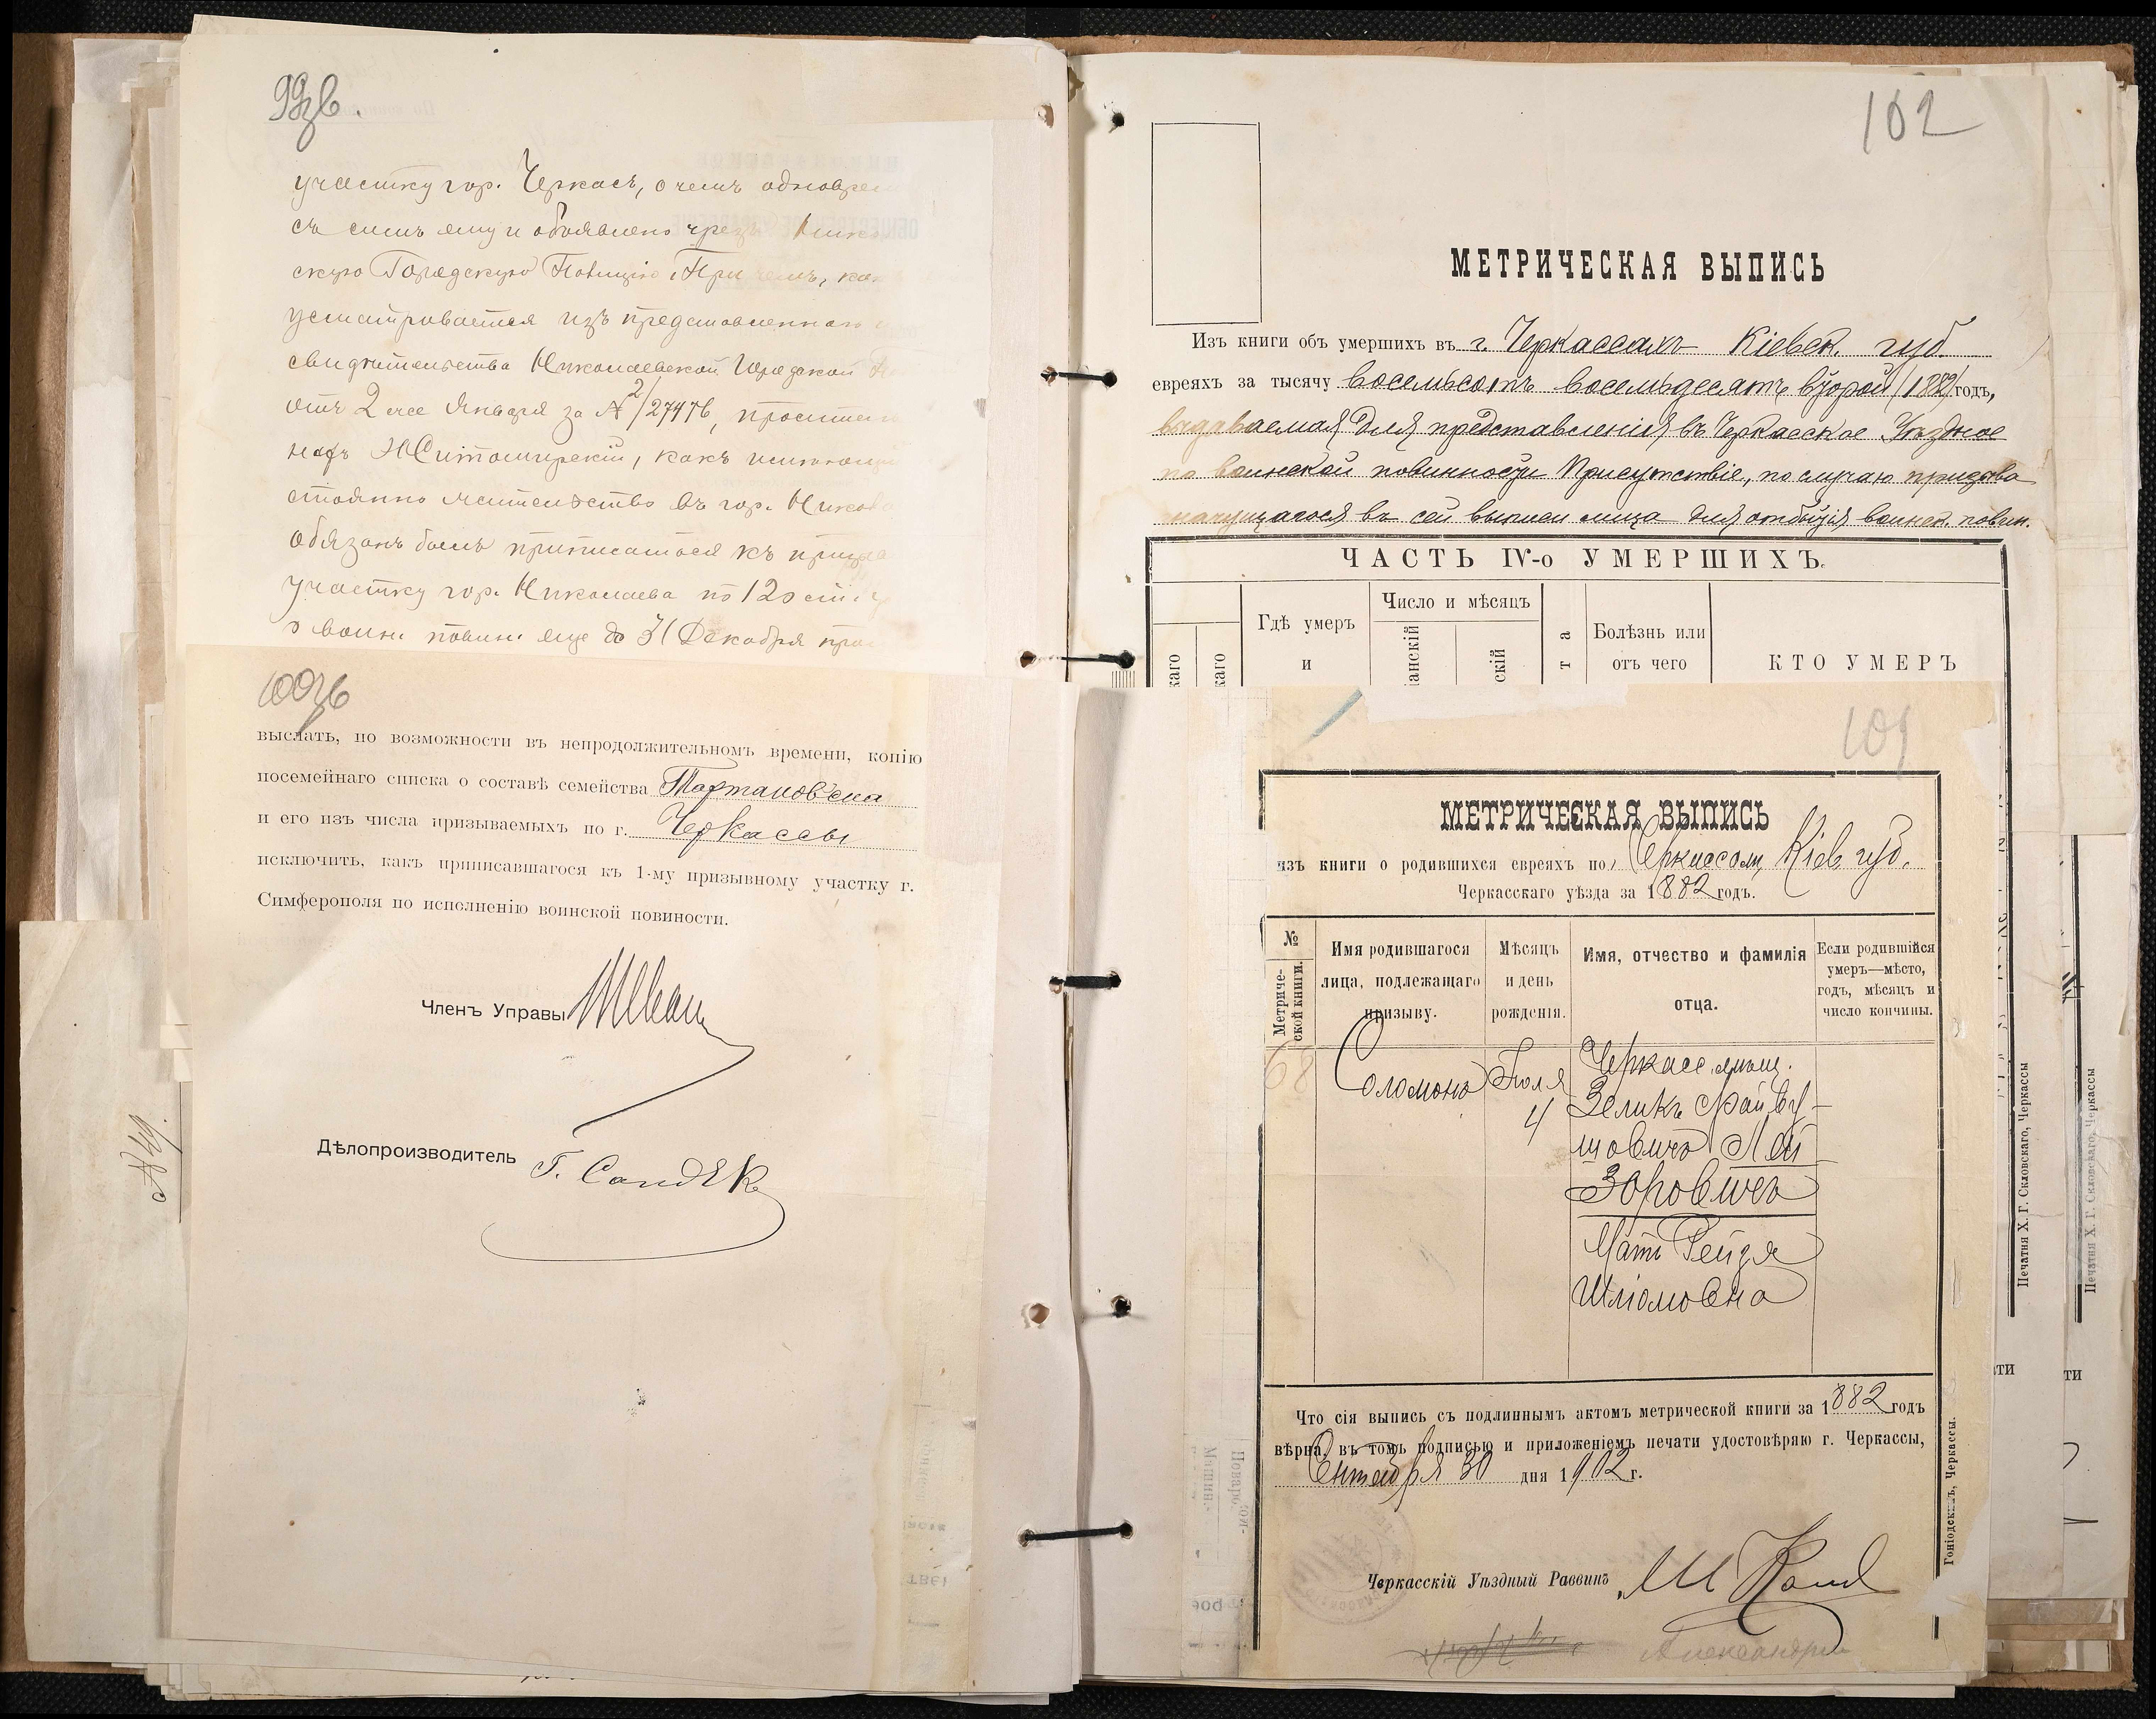 99об.
участку гор. Черкасъ, о чемъ одноврем
съ симъ ему и объявлено чрезъ Нико
скую Городскую Полицію. При чемъ, как
усматривается изъ представленнаго
свидѣтельства Николаевской Городской
отъ 2 сего Января за № 2/27476, просител
Житомирскій, какъ имѣющи
стоянно жительство въ гор. Никола
обязанъ былъ приписаться къ призыв
участку гор. Николаева по 120 ст.
о воин. повин. еще до 31 Декабря про
100об
выслать, по возможности въ непродолжительномъ времени, копію
посемейнаго списка о составѣ семейства Тартаковска
и его изъ числа призываемыхъ по г. Черкассы
исключить, какъ приписавшагося къ 1-му призывному участку г.
Симферополя по исполненію воинской повиности.
Членъ Управы
Дѣлопроизводитель
№ 49.
102
МЕТРИЧЕСКАЯ ВЫПИСЬ
Изъ книги объ умершихъ въ г. Черкассахъ Кіевск. губ.
евреяхъ за тысячу восемьсотъ восемьдесятъ второй (1882) годъ,
выдаваемая для представленія въ Черкасское Уѣздное
по воинской повинности Присутствіе, по случаю призыва
значущагося въ сей выписи лица для отбытія воинск. повин.
ЧАСТЬ IV-о УМЕРШИХЪ.
Гдѣ умеръ
и
Число и мѣсяцъ
Болѣзнь или
отъ чего
КТО УМЕРЪ
101
МЕТРИЧЕСКАЯ ВЫПИСЬ
изъ книги о родившихся евреяхъ по Черкассам, Кіев. губ.
Черкасскаго уѣзда за 1882 годъ.
№
Метриче-
ской книги.
Имя родившагося
лица, подлежащаго
призыву.
Мѣсяцъ
и день
рожденія.
Имя, отчество и фамилія
отца.
Если родившійся
умеръ—мѣсто,
годъ, мѣсяцъ и
число кончины.
68
Соломонъ
Іюля
4
Черкасс. мѣщ.
Зеликъ Файву-
шовичъ Лей
зоровичъ
Мать Рейзя
Шліомовна
Что сія выпись съ подлиннымъ актомъ метрической книги за 1882 годъ
вѣрна, въ томъ подписью и приложеніемъ печати удостовѣряю г. Черкассы,
Сентября 30 дня 1902 г.
Черкасскій Уѣздный Раввинъ
Печатня Х. Г. Скловскаго, Черкассы
Печатня Х. Г. Скловскаго, Черкассы